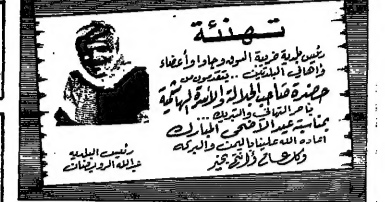 تهنئة
رئيس بلدية قريبة السوق وجاوا وأعضاء
وأهالي البلدتين .. يتقدمون من
حضرة صاحب الجلالة والأسرة الهاشمية
بأحر التهاني والتبريك ...
بمناسبة عيد الأضحى المبارك
أعاده الله علينا باليمن والبركه
وكل عام وأنتم بخير
رئيس البلديه
عبدالله الرويضان